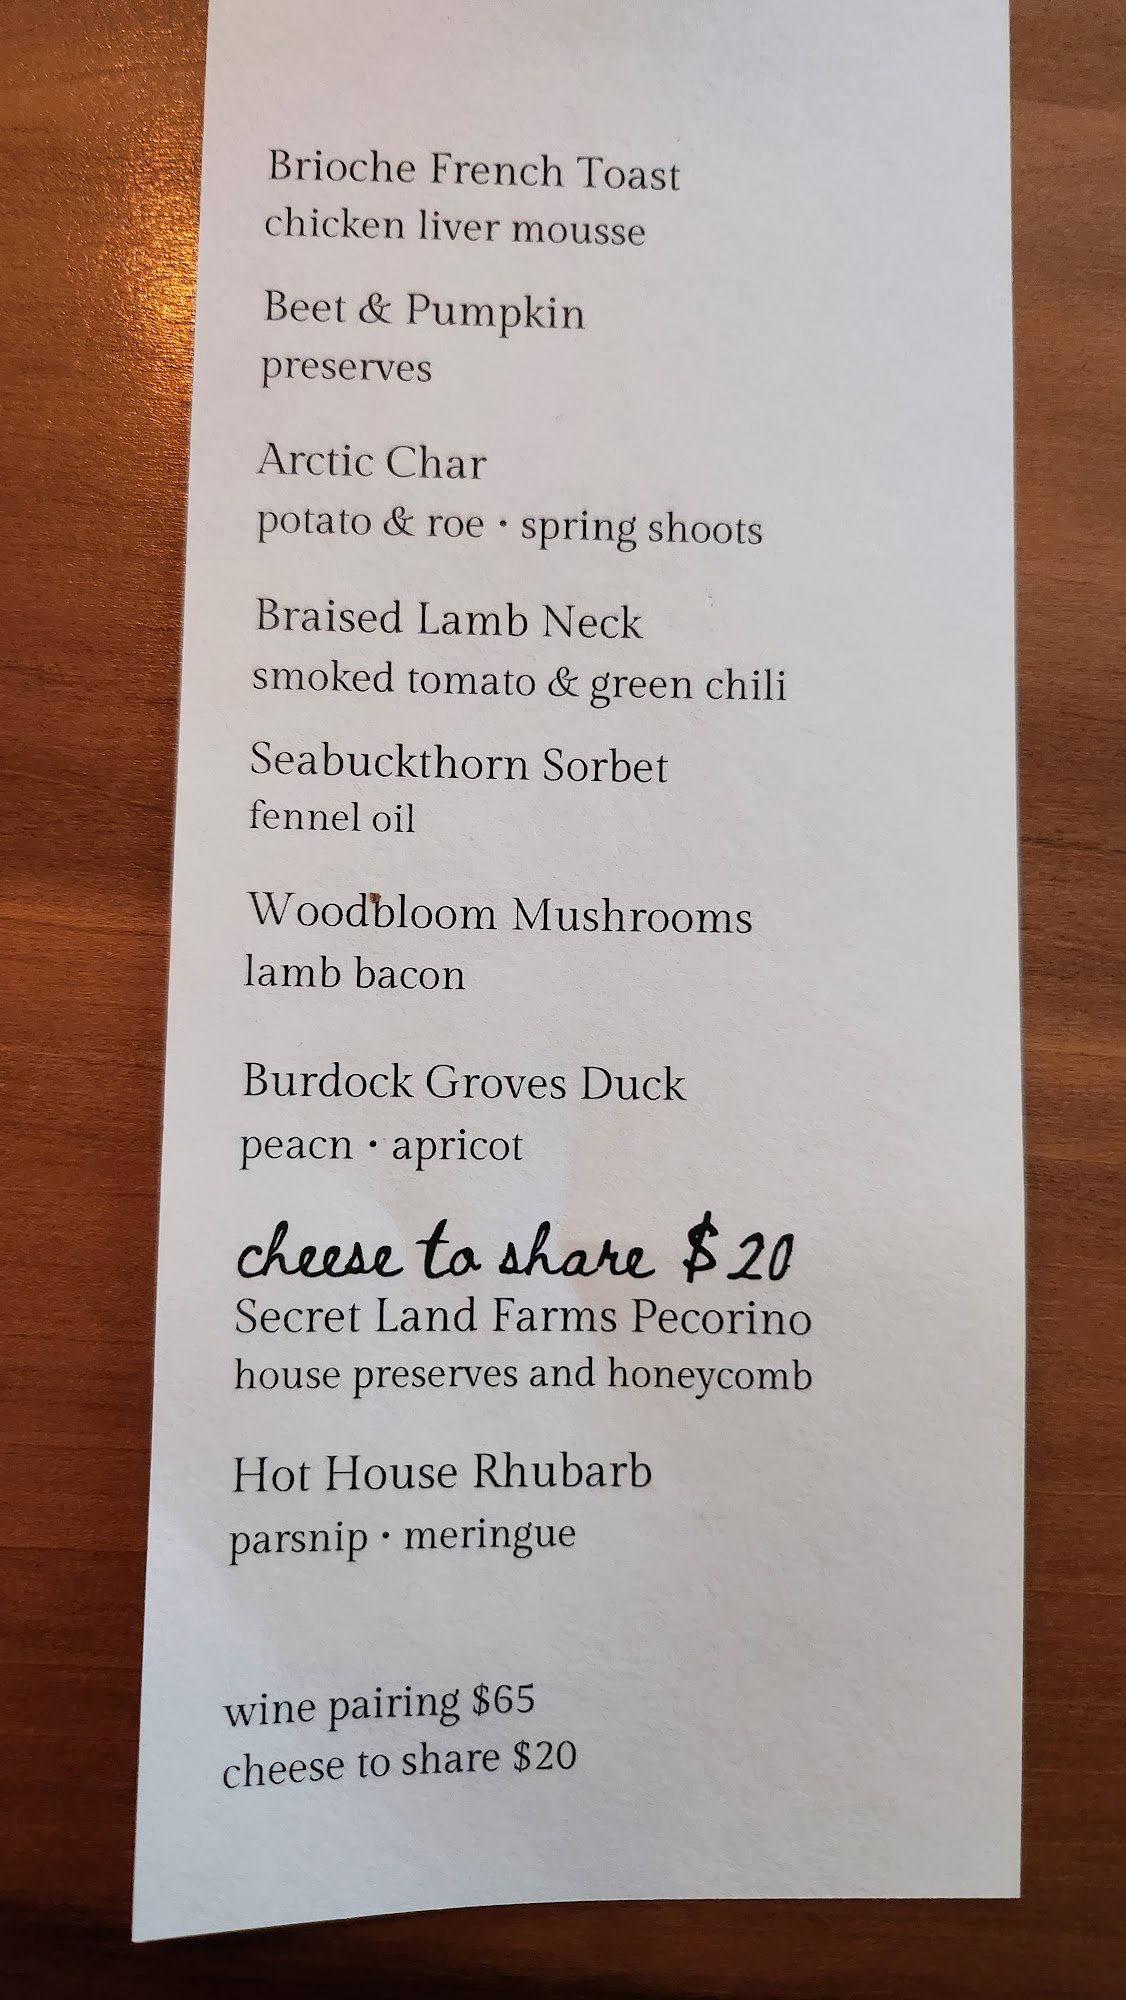 Brioche French Toast
chicken liver mousse
Beet & Pumpkin
preserves
Arctic Char
potato & roe · spring shoots
Braised Lamb Neck
smoked tomato & green chili
Seabuckthorn Sorbet
fennel oil
Woodbloom Mushrooms
lamb bacon
Burdock Groves Duck
peacn · apricot
cheese to share $20
Secret Land Farms Pecorino
house preserves and honeycomb
Hot House Rhubarb
parsnip · meringue
wine pairing $65
cheese to share $20